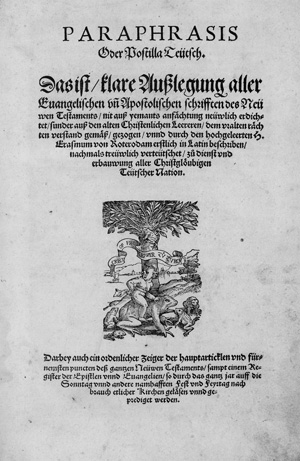 PARAPHRASIS
Oder Postilla Teütsch.
Das ist / klare Außlegung aller
Euangelischen vñ Apostolischen schrifften des Neü
wen Testaments / nit auß yemants ansächtung neüwlich erdich-
tet / sunder auß den alten Christenlichen Leereren / dem vralten räch
ten verstand gemäß / gezogen / vnnd durch den hochgeleerten H.
Erasmum von Roterodam erstlich in Latin beschriben /
nachmals treüwlich verteütschet / zů dienst vnd
erbauwung aller Christglöubigen
Teütscher Nation.
Darbey auch ein ordenlicher Zeiger der hauptarticklen vnd für-
nemsten puncten deß gantzen Neüwen Testaments / sampt einem Re-
gister der Epistlen vnnd Euangelien / so durch das gantz jar auff die
Sonntag vnnd andere namhafften Fest vnd Feyrtag nach
brauch etlicher Kirchen geläsen vnnd ge-
prediget werden.